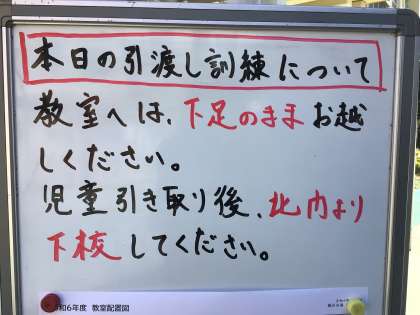 本日の引渡し訓練について
教室へは、下足のままお越
しください。
児童引き取り後、北門より
下校してください。
令和6年度 教室配置図